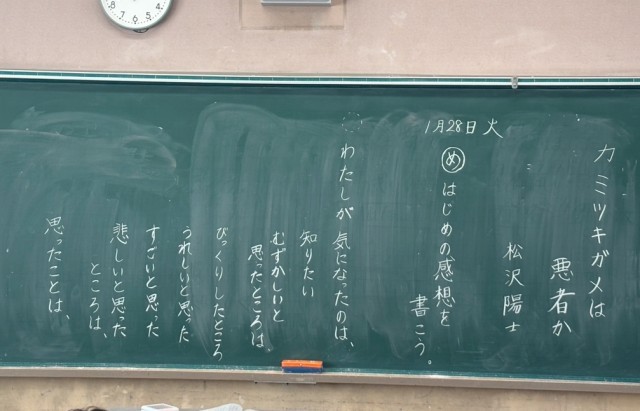 カミツキガメは
悪者か
松沢陽士
1月28日 火
め はじめの感想を
書こう。
わたしが 気になったのは、
知りたい
むずかしいと
思ったところは。
びっくりしたところ
うれしいと思った
すごいと思った
悲しいと思った
ところは、
思ったことは、